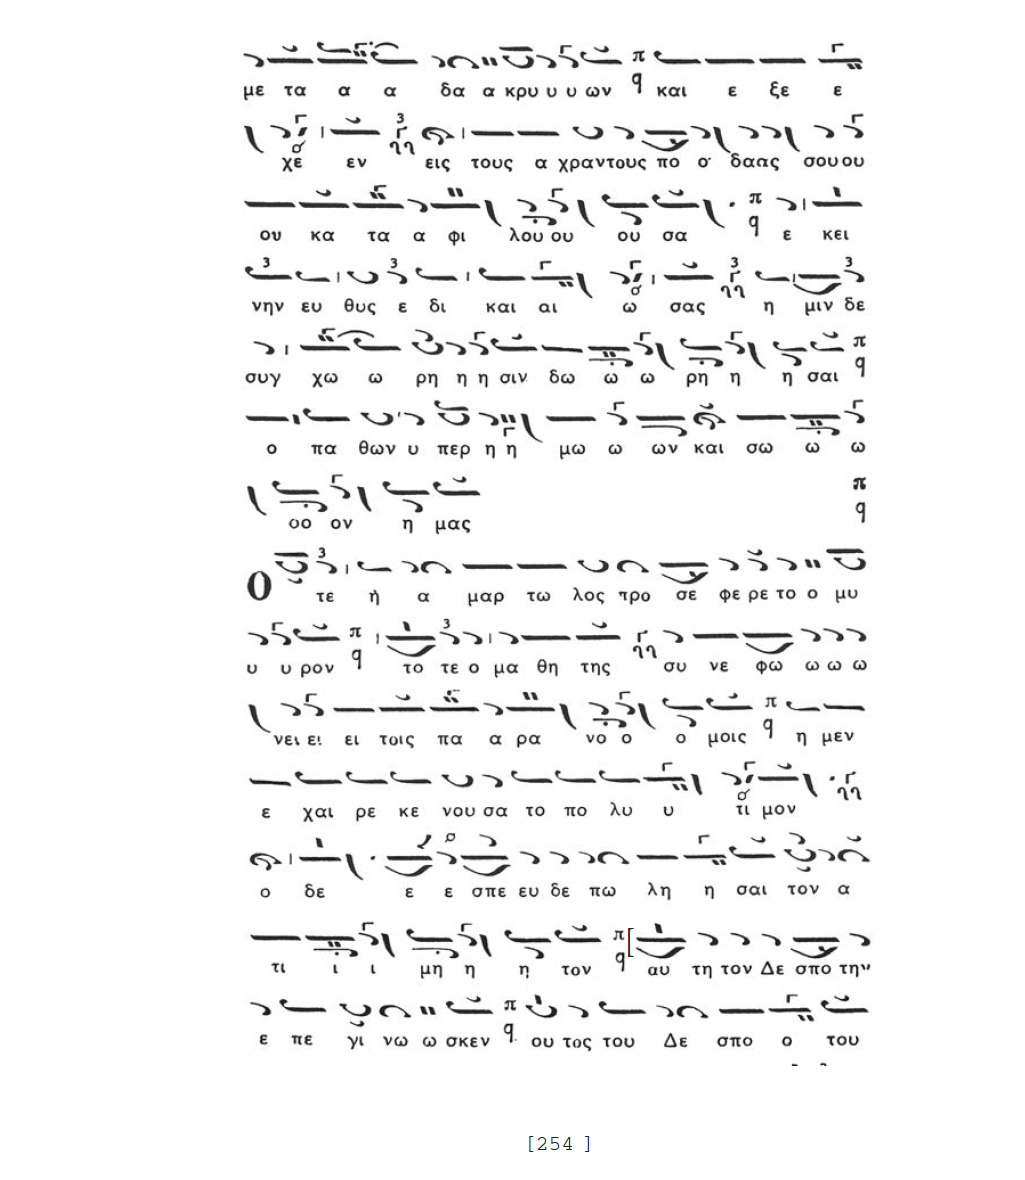 με τα α α δα α κρυ υ υ ων π q και ε ξε ε
χε εν εις τους α χραντους πο ο δαας σου ου
ου κα τα α φι λου ου ου σα π q ε κει
νην ευ θυς ε δι και αι ω σας η μιν δε
συγ χω ω ρη η η σιν δω ω ω ρη η η σαι π q
ο πα θων υ περ η η μω ω ων και σω ω ω
οο ον η μας π q
Ο τε ἡ α μαρ τω λος προ σε φε ρε το ο μυ
υ υ ρον π q το τε ο μα θη της συ νε φω ω ω ω
νει ει ει τοις πα α ρα νο ο ο μοις π q η μεν
ε χαι ρε κε νου σα το πο λυ υ τι μον
ο δε ε ε σπε ευ δε πω λη η σαι τον α
τι ι ι μη η η τον π q [ αυ τη τον Δε σπο την
ε πε γι νω ω σκεν π q ου τος του Δε σπο ο του
[254 ]